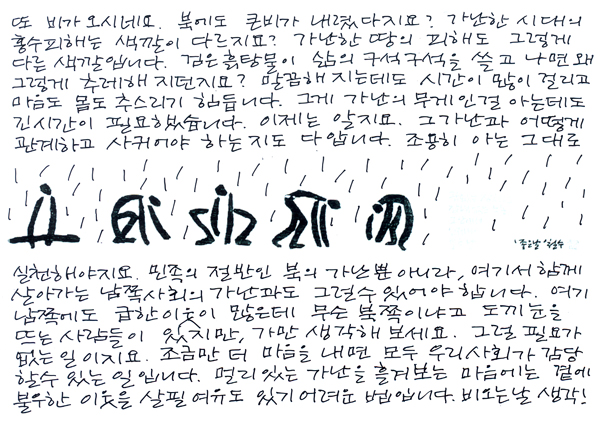 또 비가 오시네요. 북에도 큰비가 내렸다지요? 가난한 시대의
홍수피해는 색깔이 다르지요? 가난한 땅의 피해도 그렇게
다른 색깔입니다. 검은 흙탕물이 삶의 구석구석을 쓸고 나면 왜
그렇게 추레해 지던지요? 말끔해 지는데도 시간이 많이 걸리고
마음도 몸도 추스리기 힘듭니다. 그게 가난의 무게인걸 아는데도
긴시간이 필요했습니다. 이제는 알지요. 그가난과 어떻게
관계하고 사귀어야 하는지도 다 압니다. 조용히 아는 그대로
'철수
실천해야지요. 민족의 절반인 북의 가난뿐 아니라, 여기서 함께
살아가는 남쪽사회의 가난과도 그럴수 있어야 합니다. 여기
남쪽에도 급한이웃이 많은데 무슨 북쪽이냐고 도끼눈을
뜨는 사람들이 있지만, 가만 생각해 보세요. 그럴 필요가
없는 일이지요. 조금만 더 마음을 내면 모두 우리사회가 감당
할수 있는 일입니다. 멀리있는 가난을 흘겨보는 마음에는 곁에
불우한 이웃을 살필 여유도 있기 어려운 법입니다. 비오는날 생각!